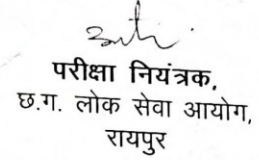 परीक्षा नियंत्रक,
छ.ग. लोक सेवा आयोग,
रायपुर